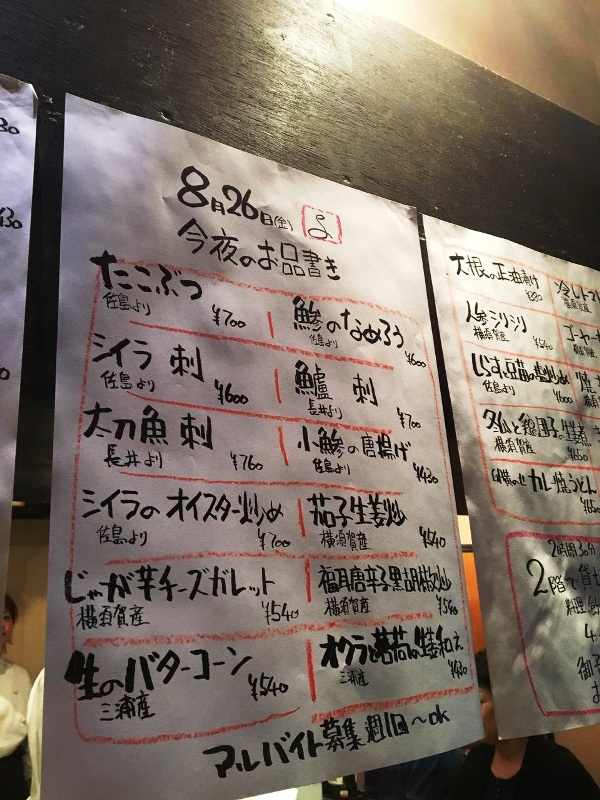 8月26日(金)
今夜のお品書き
たこぶつ
佐島より
¥700
鯵のなめろう
佐島より
¥600
シイラ 刺
佐島より
¥600
鱸 刺
長井より
¥700
太刀魚 刺
長井より
¥760
小鯵の唐揚げ
佐島より
¥430
シイラのオイスター炒め
佐島より
¥700
茄子生姜炒
横須賀産
¥540
じゃが芋チーズガレット
横須賀産
¥540
福耳唐辛子黒胡椒炒
横須賀産
¥540
生のバターコーン
三浦産
¥540
オクラと茗荷の生姜和え
三浦産
¥430
アルバイト募集 週1回〜ok
大根の正油漬け
¥320
人参シリシリ
横須賀産
¥540
しらす豆苗の塩炒め
佐島より
¥600
横須賀産
¥650
カレー焼うどん
¥650
冷しトマト
ゴーヤー
2時間30分
2階で貸
料理